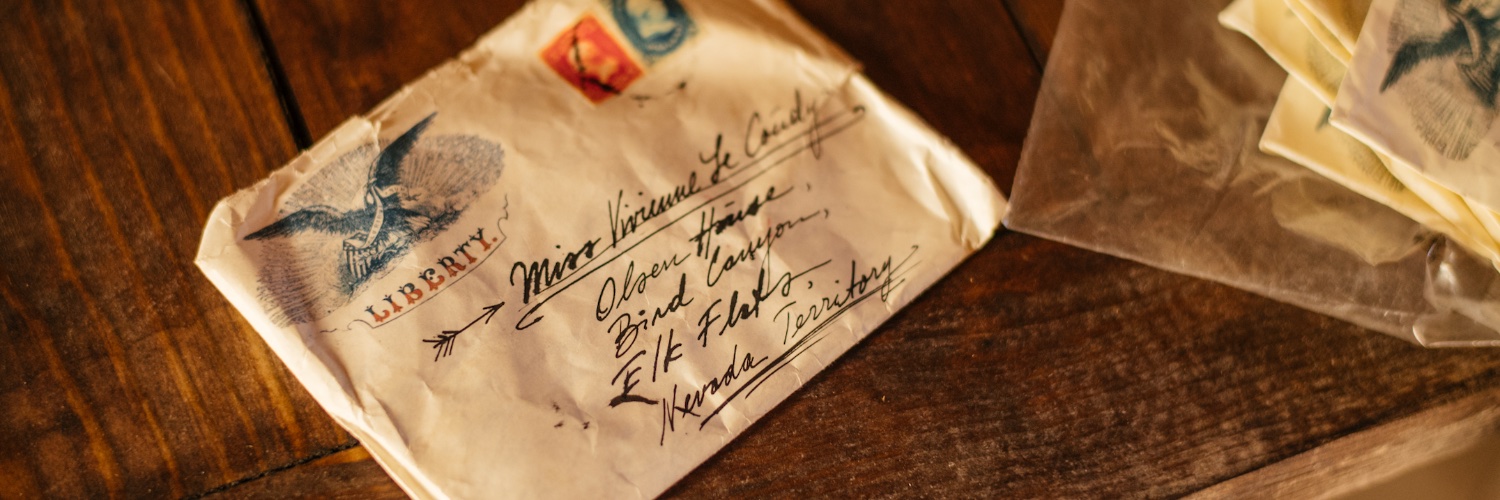 LIBERTY.
Miss Vivienne Le Coudy
Olsen House,
Bird Canyon,
Elk Flats.
Nevada Territory